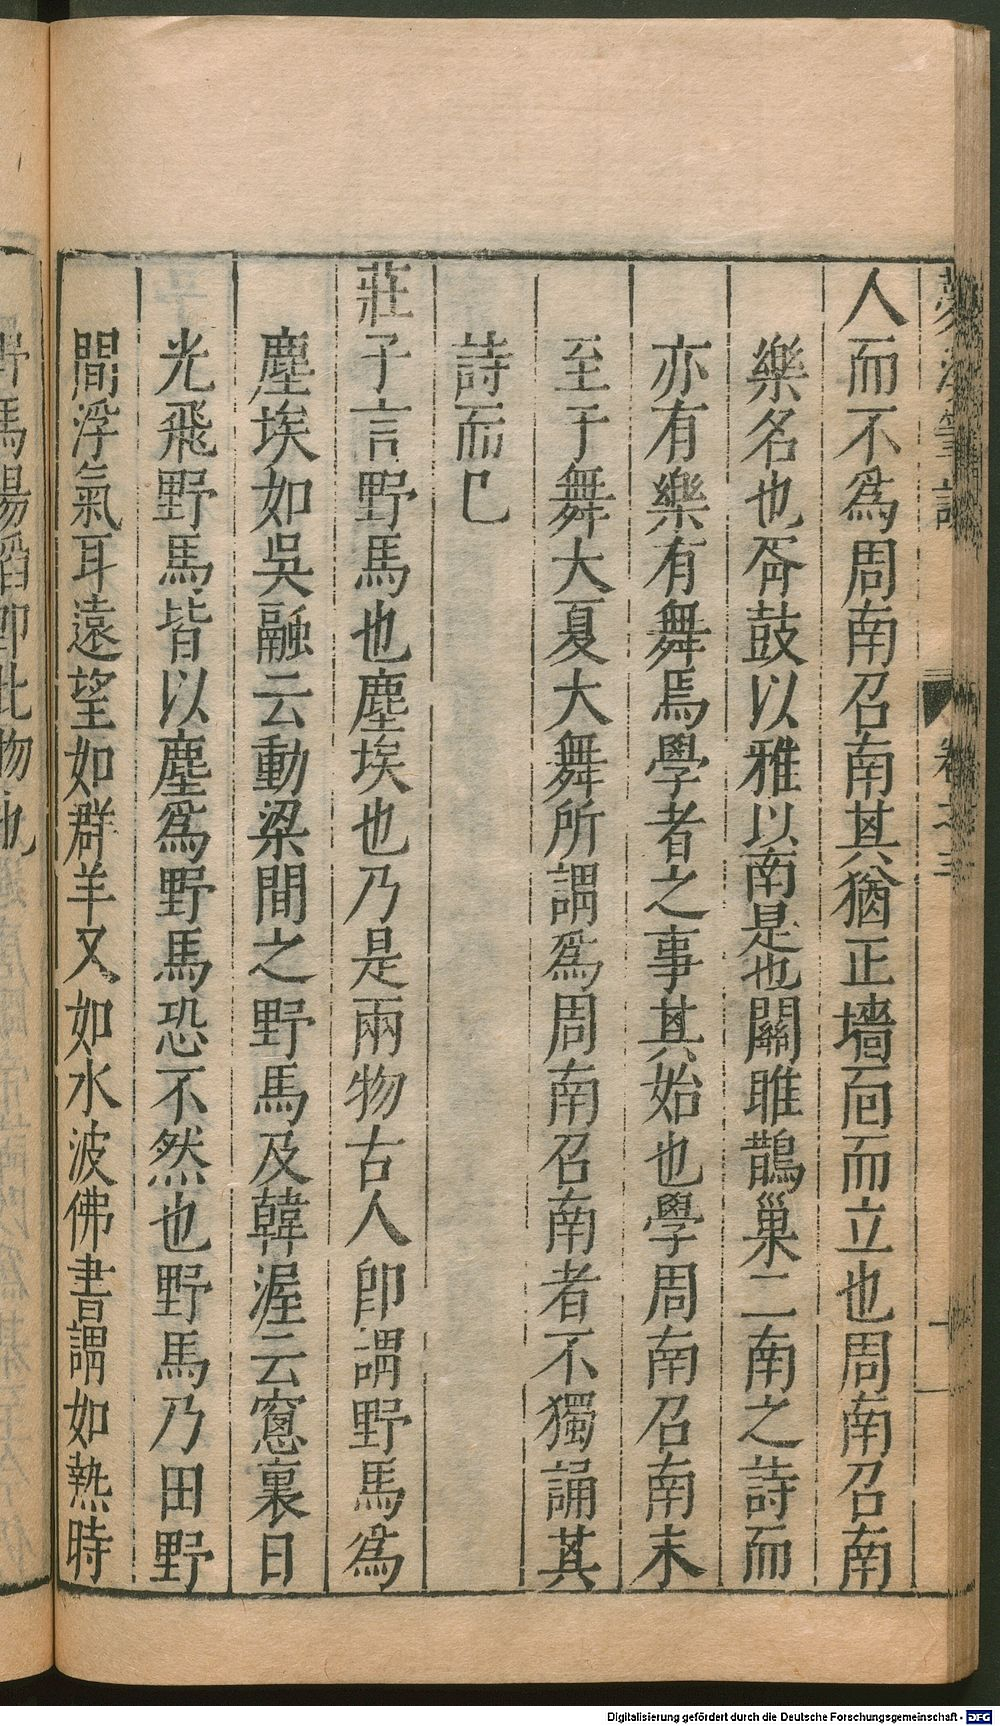 夢溪筆談 卷之三
人而不爲周南召南其猶正墻靣而立也周南召南
樂名也胥鼓以雅以南是也關雎鵲巢二南之詩而
亦有樂有舞焉學者之事其始也學周南召南末
至于舞大夏大舞所謂爲周南召南者不獨誦其
詩而已
莊子言野馬也塵埃也乃是兩物古人卽謂野馬爲
塵埃如吳融云動梁間之野馬及韓渥云窻裏日
光飛野馬皆以塵爲野馬恐不然也野馬乃田野
間浮氣耳遠望如群羊又如水波佛書謂如熱時
野馬陽熖卽此物也
Digitalisierung gefördert durch die Deutsche Forschungsgemeinschaft - DFG